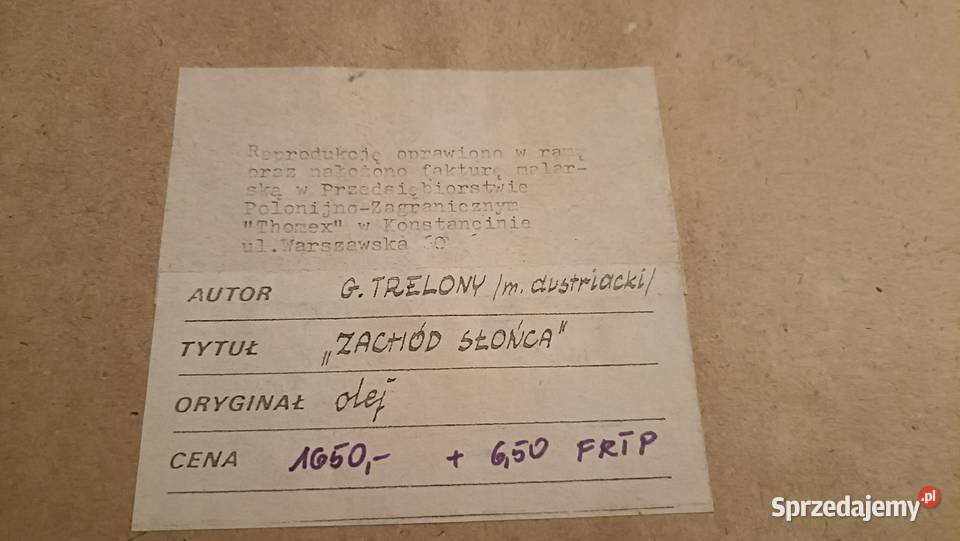 Reprodukcję oprawiono w ramę
oraz nałożono fakturę malar-
ską w Przedsiębiorstwie
Polonijno-Zagranicznym
"Thomex" w Konstancinie
ul.Warszawska
AUTOR G. TRELONY /m. austriacki/
TYTUŁ „ZACHÓD SŁOŃCA"
ORYGINAŁ olej
CENA 1650,- + 6,50 FRTP
Sprzedajemy.pl